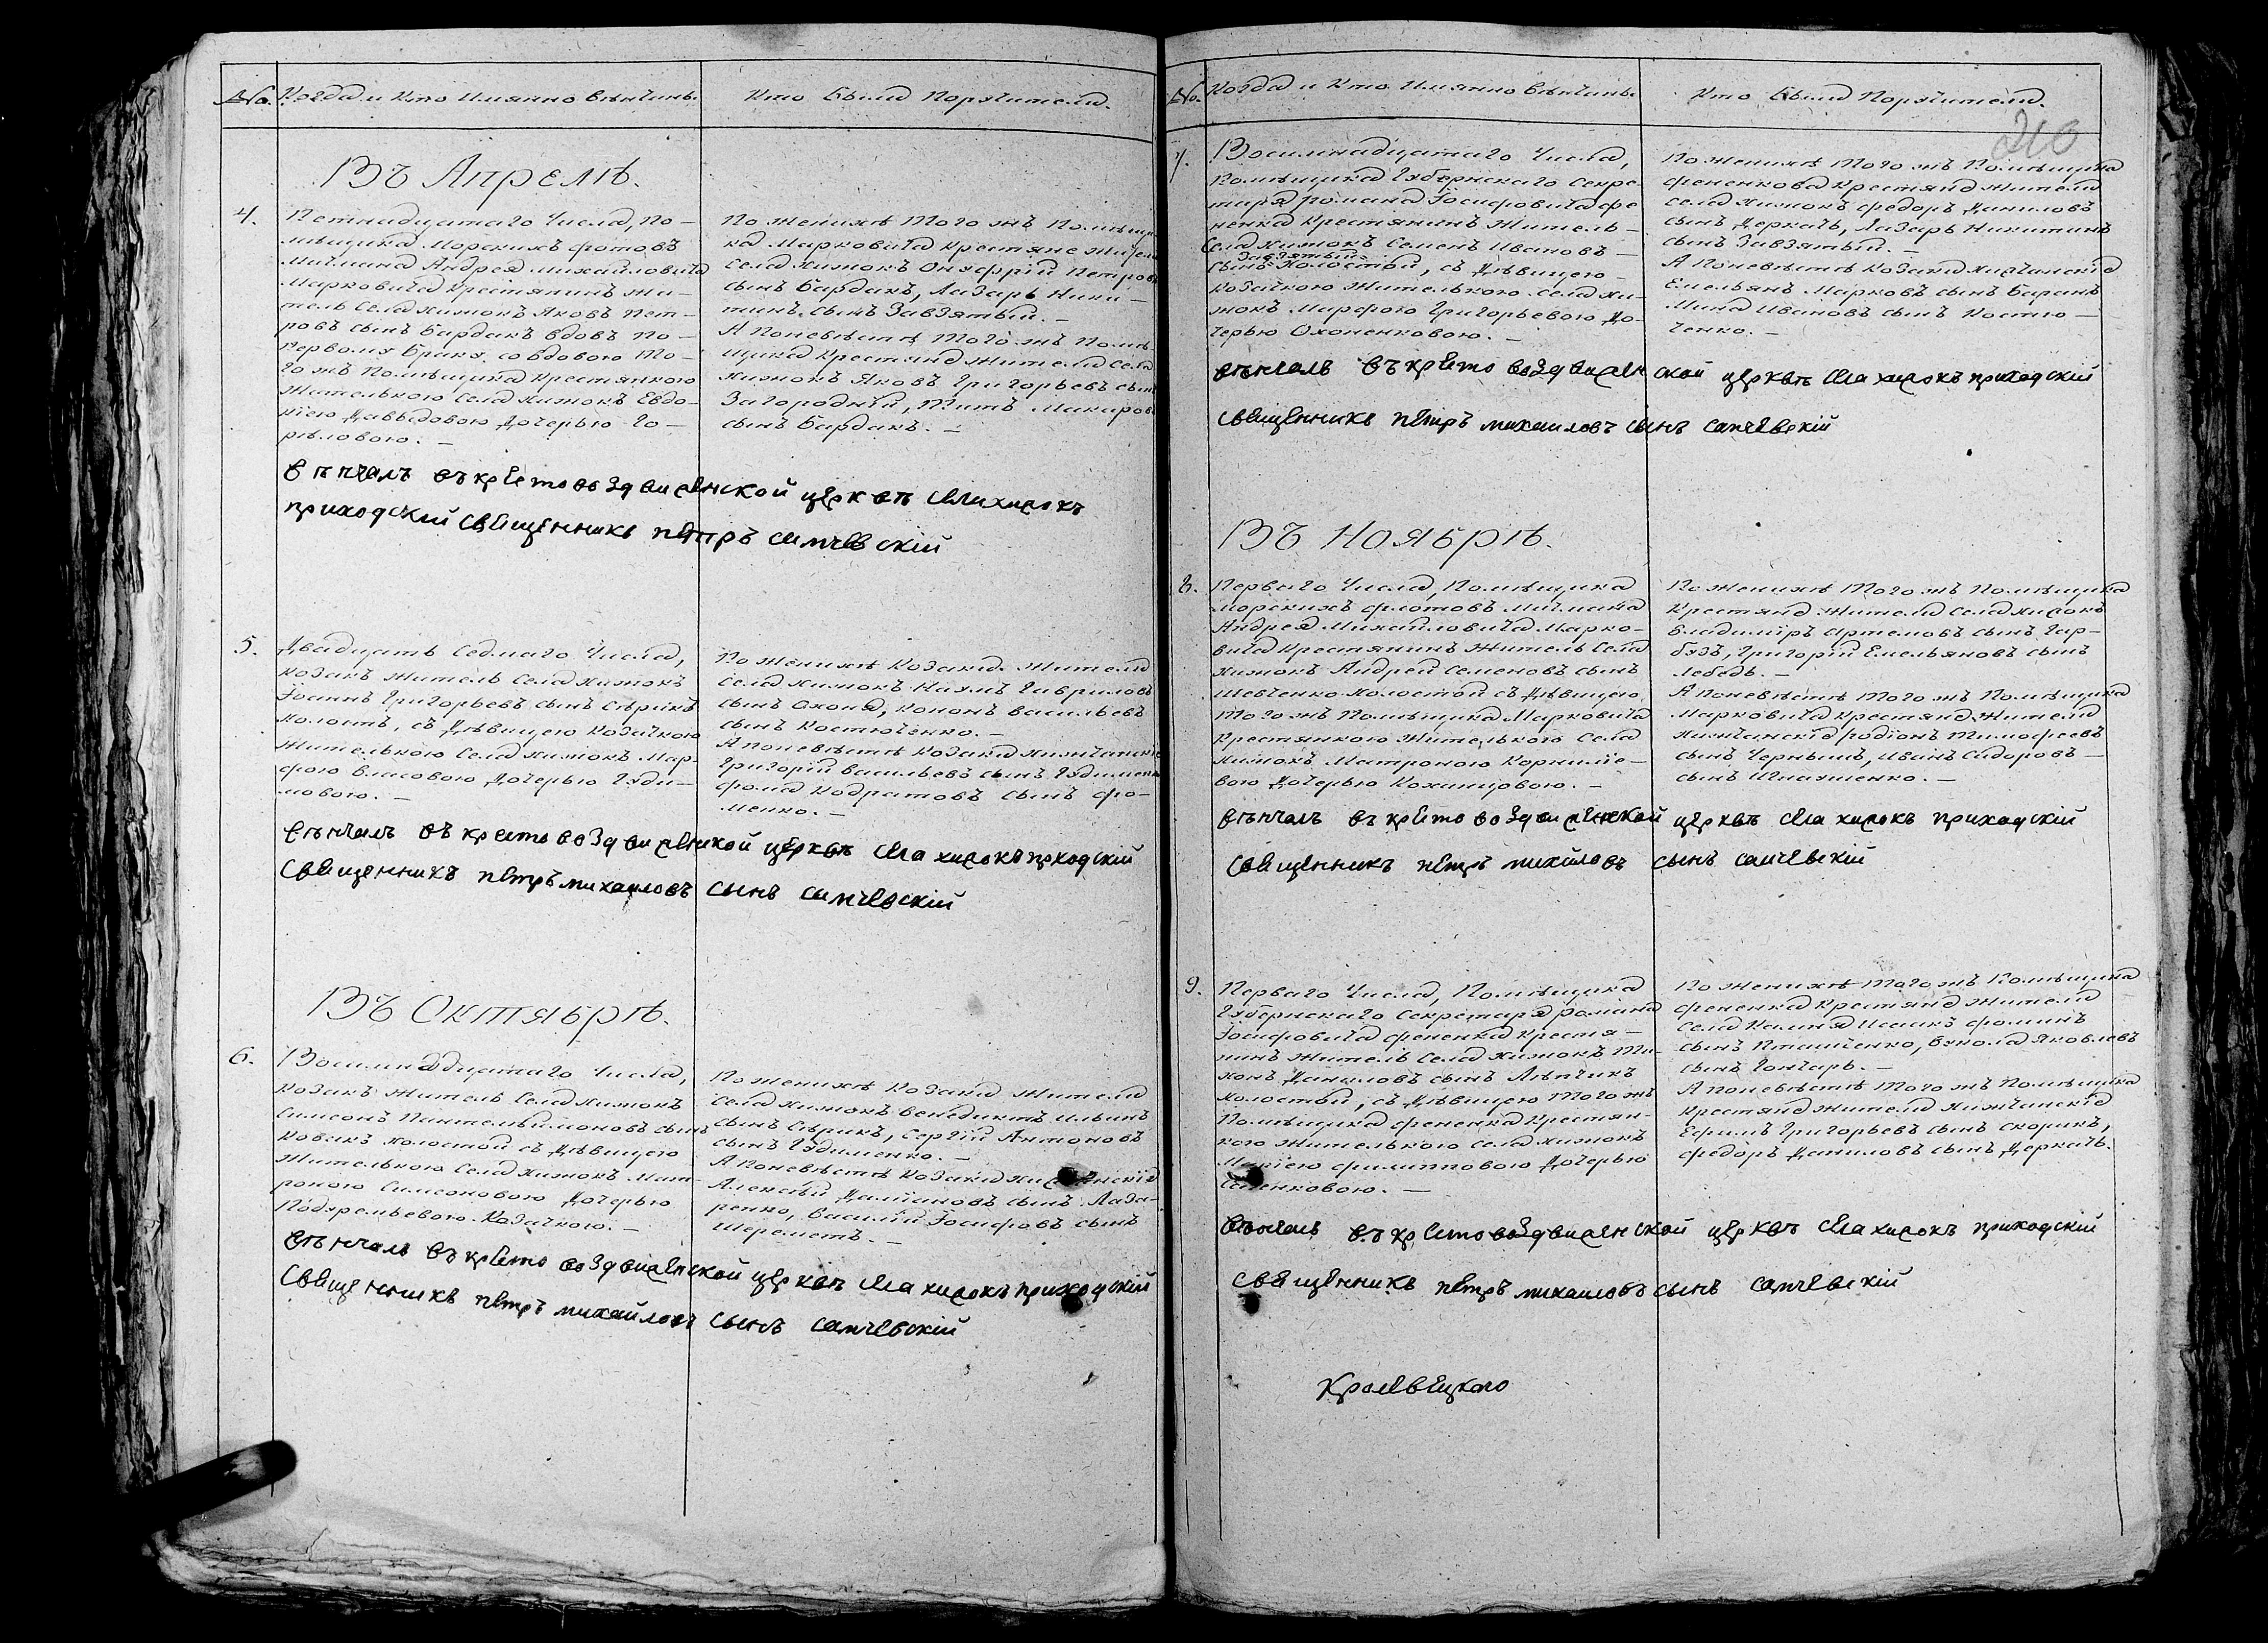 №. Когда и Кто Имянно венчины.
Кто были Поручители.
Въ Апреле.
4. Петнадцатаго Числа, По-
мѣщика Морскихъ флотовъ
Мичмана Андрея Михайловича
Марковича Крестянинъ Жи-
тель Села Хижокъ Яковъ Пет-
ровъ сынъ Бардакъ вдовъ По-
Первому Браку, со вдовою То-
го жъ Помѣщика Крестянкою
Жителькою Села Хижокъ Евдо-
кіею Давыдовою Дочерью Го-
рѣловою. —
По Женихѣ Того жъ Помѣщи
ка Марковича Крестяне Жители
Села Хижокъ Онуфрій Петровъ
сынъ Бардакъ, Лазарь Ники-
тинъ сынъ Завзятый. —
А Поневѣстѣ Того жъ Помѣ
щика Крестяне Жители Села
Хижокъ Яковъ Григорьевъ сынъ
Загородній, Титъ Макаровъ
сынъ Бардакъ. —
Вѣнчалъ въ крестовоздвиженской церквѣ села хижокъ
приходскій священникъ петръ самчевскій
5. Двадцать Седмаго Числа,
Козакъ Житель Села Хижокъ
Іоаннъ Григорьевъ сынъ Сѣрикъ
Холостъ, съ Дѣвицею Козачкою
Жителькою Села Хижокъ Мар-
фою Власовою Дочерью Гуди-
мовою. —
По Женихѣ Козаки Жители
Села Хижокъ Наумъ Гавриловъ
сынъ Охоня, Кононъ Васильевъ
сынъ Костюченко. —
А поневѣстѣ Козаки Хижчанскіе
Григорій Васильевъ сынъ Гудименко
Фома Кодратовъ сынъ Фо-
менко. —
Вѣнчалъ въ крестовоздвиженской церквѣ села хижокъ прходскій
священникъ петръ михаиловъ сынъ самчевскій
Въ Октябрѣ.
6. Восимнадцатаго Числа,
Козакъ Житель Села Хижокъ
Симеонъ Пантелыймоновъ сынъ
Ковикъ Холостой съ Дѣвицею
Жителькою Села Хижокъ Мат-
роною Симеоновою Дочерью
Козачкою. —
По Женихѣ Козаки Жители
Села Хижокъ Бенедиктъ Ильинъ
сынъ Сѣрикъ, Сергій Антоновъ
сынъ Гудименко. —
А Поневѣстѣ Козаки Хижчанскіе
Алексѣй Даміановъ сынъ Лаза-
ренко, Василій Іосифовъ сынъ
Шереметъ. —
Вѣнчалъ въ крестовоздвиженской церквѣ села хижокъ приходскій
священникъ петръ михайловъ сынъ самчевскій
№. Когда и Кто Имянно венчины.
Кто были Поручители.
210
7. Восимнадцатаго Числа,
Помѣщика Губернскаго Секре-
таря Романа Іосифовича Фе
ненка Крестянинъ Житель —
Села Хижокъ Семенъ Ивановъ —
Завзятый
сынъ Холостой, съ Дѣвицею —
Козачкою Жителькою Села Хи-
жокъ Марфою Григорьевою До-
черью Охоненковою. —
По Женихѣ Того жъ Помѣщика
Фененкова Крестяне Жители
Села Хижокъ Федоръ Даниловъ
сынъ Деркачъ, Лазарь Никитинъ
сынъ Завзятый. —
А Поневѣстѣ Козаки Хижчанскіе
Емельянъ Марковъ сынъ Баранъ
Мина Ивановъ сынъ Костю —
ченко. —
вѣнчалъ въ крестовоздвиженской церквѣ села хижокъ приходскій
священникъ петръ михаиловъ сынъ самчевскій
Въ Ноябрѣ.
8. Перваго Числа, Помѣщика
Морскихъ флотовъ Мичмана
Андрея Михайловича Марко-
вича Крестянинъ Житель Села
Хижокъ Андрей Семеновъ сынъ
Шевченко Холостой съ Дѣвицею
Того жъ Помѣщика Марковича
Крестянкою Жителькою Села
Хижокъ Матроною Корниліе-
вою Дочерью Коханцовою. —
По Женихѣ Того жъ Помѣщика
Крестяне Жители Села Хижокъ
Владиміръ Артемовъ сынъ Гар-
бузъ, Григорій Емельяновъ сынъ
Лебедь. —
А Поневѣстѣ Того жъ Помѣщика
Марковича Крестяне Жители
Хижчанскіе Родіонъ Тимофеевъ
сынъ Чернышъ, Иванъ Сидоровъ —
сынъ Игнатенко. —
вѣнчалъ въ крестовоздвиженской церквѣ села хижокъ приходскій
священникъ петръ михйловъ сынъ самчевскій
9. Перваго Числа, Помѣщика
Губернскаго Секретаря Романа
Іосифовича Фененка Крестя-
нинъ Житель Села Хижокъ Ти-
хонъ Даниловъ сынъ Лѣпчикъ
Холостой, съ Дѣвицею Того жъ
Помѣщика Фененка Крестян-
кою Жителькою Села Хижокъ
Маріею Филипповою Дочерью
По Женихѣ Того жъ Помѣщика
Фененка Крестяне Жители
Села Исаакъ Фоминъ
сынъ Пташенко, Вукола Яковлевъ
сынъ Гончаръ. —
А поневѣстѣ Того жъ Помѣщика
Крестяне Жители Хижчанскіе
Ефимъ Григорьевъ сынъ Скорикъ,
Федоръ Даниловъ сынъ Деркачъ.
вѣнчалъ въ крестовоздвиженской церквѣ села хижокъ приходскій
священникъ петръ михаиловъ сынъ самчевскій
Кролевецкаго